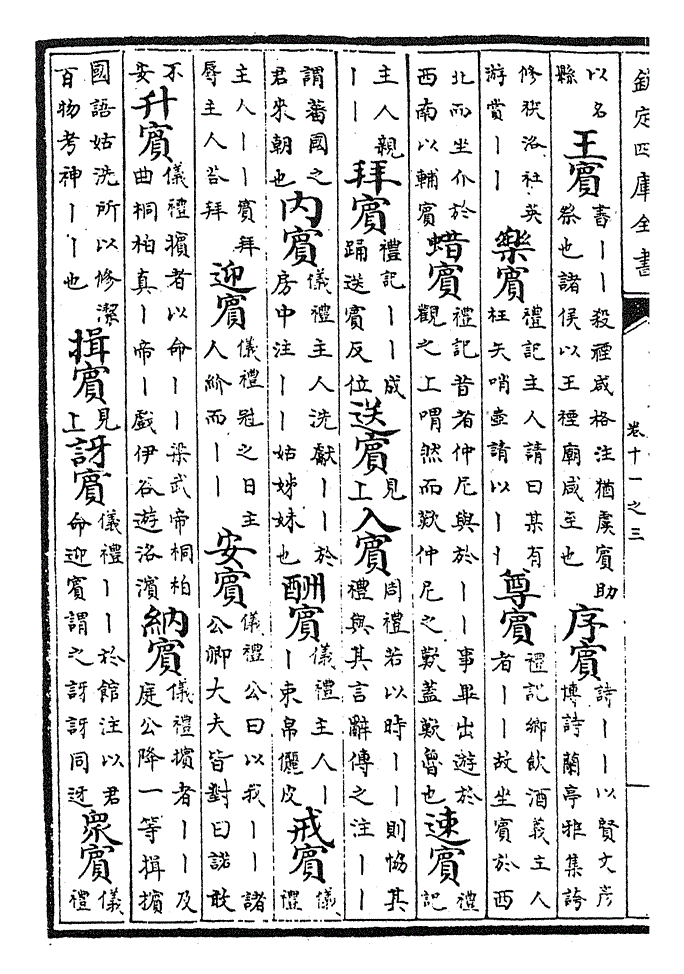 欽定四庫全書 卷十一之三
以名縣 王賓 書丨丨殺禋咸格注猶虞賓助祭也諸侯以王禋廟咸至也 序賓 詩丨丨以賢文彦博詩蘭亭雅集誇
修秡洛社英遊賞丨丨 樂賓 禮記主人請曰某有枉矢哨壺請以丨丨 尊賓 禮記鄉飲酒義主人者丨丨故坐賓於西
北而坐介於西南以輔賓 蜡賓 禮記昔者仲尼與於丨丨事畢出遊於觀之上喟然而歎仲尼之歎蓋歎魯也 速賓 禮記
主人親丨丨 拜賓 禮記丨丨成踊送賓反位 送賓 見上 入賓 周禮若以時丨丨則恊其禮與其言辭傳之注丨丨
謂蕃國之君來朝也 内賓 儀禮主人洗獻丨丨於房中注丨丨姑姊妹也 酬賓 儀禮主人丨丨束帛儷皮 戒賓 儀禮
主人丨丨賓拜辱主人荅拜 迎賓 儀禮冠之日主人紒而丨丨 安賓 儀禮公曰以我丨丨諸公卿大夫皆對曰諾敢
不安 升賓 儀禮擯者以命丨丨梁武帝桐柏曲桐柏真丨帝丨戲伊谷遊洛濱 納賓 儀禮擯者丨丨及庭公降一等揖擯
國語姑洗所以修潔百物考神丨丨也 揖賓 見上 訝賓 儀禮丨丨於館注以君命迎賓謂之訝訝同迓 衆賓 儀禮